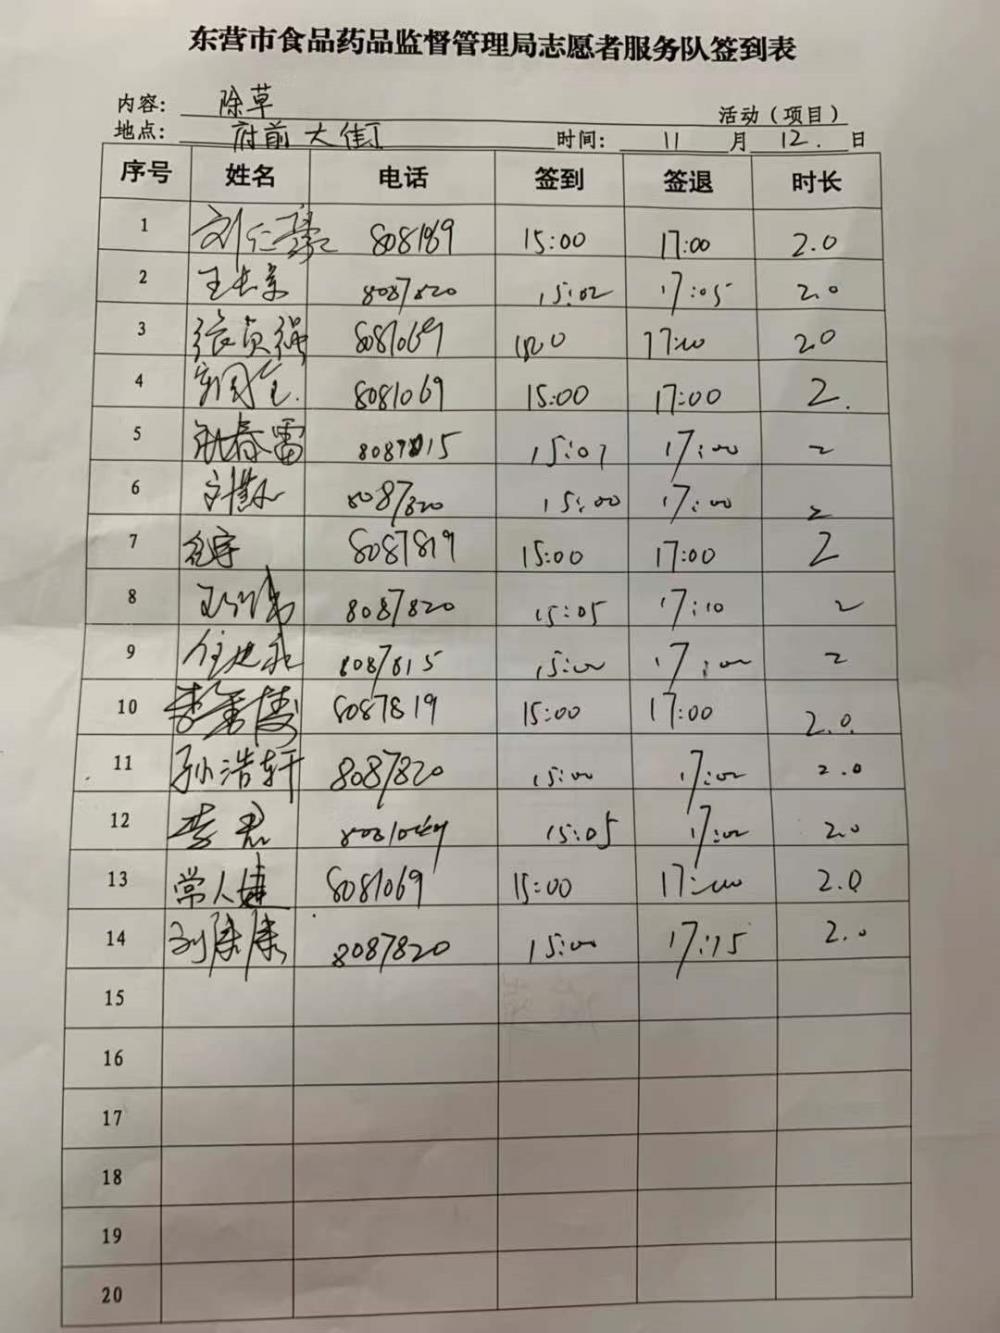 东营市食品药品监督管理局志愿者服务队签到表
内容: 除草 活动(项目)
地点: 府前大街 时间: 11 月 12. 日
序号 姓名 电话 签到 签退 时长
1 刘仁豪 808189 15:00 17:00 2.0
2 8087820 15:02 17:05 2.0
3 张贞强 8081069 17:00 2.0
4 8081069 15:00 17:00 2.
5 春雷 15:07 17:00 2
6 8087820 15:00 17:00 2
7 8087819 15:00 17:00 2
8 8087820 15:05 17:10 2
9 8087815 15:00 17:00 2
10 8087819 15:00 17:00 2.0
11 孙浩轩 8087820 15:00 17:00 2.0
12 李君 15:05 17:00 2.0
13 常人婕 8081069 15:00 17:00 2.0
14 刘康康 8087820 15:00 17:15 2.0
15
16
17
18
19
20